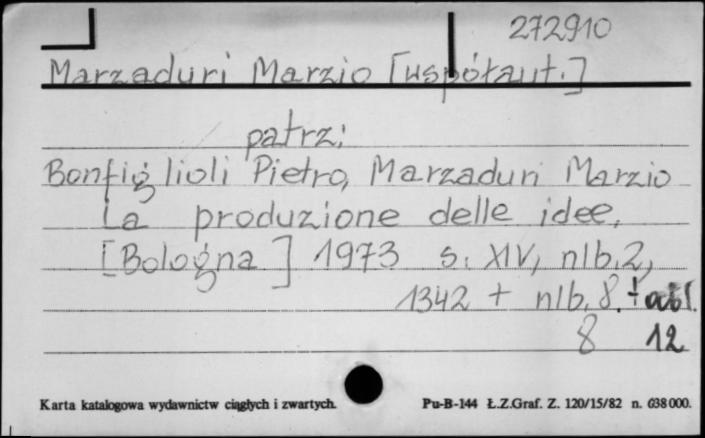 272910
Marzaduri Marzio [współaut.]
patrz:
Bonfiglioli Pietro, Marzaduri Marzio
La produzione delle idee,
[Bologna] 1973 s. XIV, nlb. 2,
1342 + nlb. 8. +
8 12
Karta katalogowa wydawnictw ciągłych i zwartych. Pu-B-144 Ł.Z.Graf. Z. 120/15/82 n. 638000.